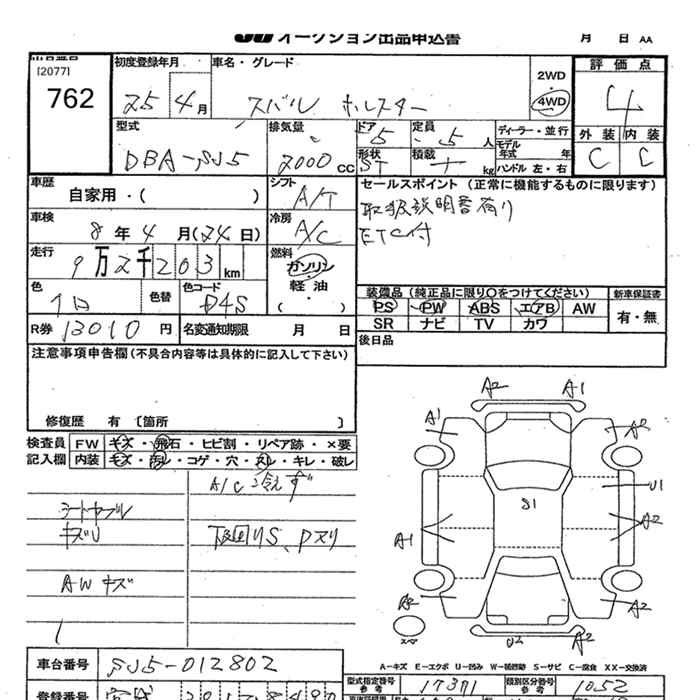 JU オークション出品申込書
月 日 AA
[2077]
762
初度登録年月
25年 4月
車名・グレード
スバル ホルスター
2WD
4WD
評価点
4
外装 内装
C C
型式
DBA-SJ5
排気量
2000 CC
ドア
5
定員
5 人
形状
ST
積載
kg
ディーラー・並行
モデル年式 年
ハンドル 左・右
車歴
自家用・( )
シフト
A/T
セールスポイント (正常に機能するものに限ります)
取扱説明書有り
ETC付
車検
8年4月(24日)
冷房
A/C
走行
9万2千203km
燃料
ガソリン
軽油
( )
色
色替
色コード
D4S
装備品 (純正品に限り○をつけてください)
PS PW ABS エアB AW
SR ナビ TV カワ
新車保証書
有・無
R券 13010 円
名変通知期限 月 日
後日品
注意事項申告欄(不具合内容等は具体的に記入して下さい)
修復歴 有 [箇所 ]
検査員記入欄
FW キズ・飛石・ヒビ割・リペア跡・×要
内装 キズ・汚レ・コゲ・穴・ヌレ・キレ・破レ
A/C冷えず
キズU
下回りS、Pヌリ
AWキズ
A2 A1
A1 A2
U1
S1
A1 A2
A2 A2
スペア
U2
A-キズ E-エクボ U-凹み W-補修跡 S-サビ C-腐食 XX-交換済
車台番号 SJ5-012802
型式指定番号 参考 17371
類別区分番号 参考 1052
登録番号